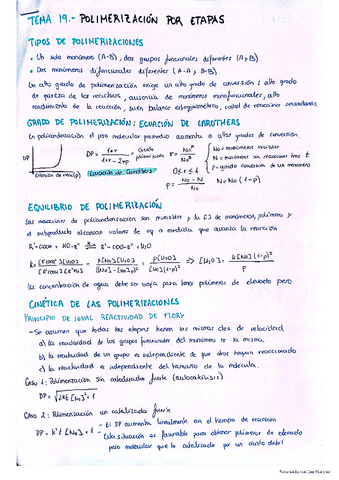 TEMA 19.- POLIMERIZACIÓN POR ETAPAS
TIPOS DE POLIMERIZACIONES
• Un solo monómero (A-B), dos grupos funcionales diferentes (A y B)
• Dos monómeros difuncionales diferentes (A-A y B-B).
Un alto grado de polimerización exige un alto grado de conversión: alto grado
de pureza de los reactivos, ausencia de monómeros monofuncionales, alto
rendimiento de la reacción, buen balance estequiométrico, control de reacciones secundarias
GRADO DE POLIMERIZACIÓN: ECUACIÓN DE CAROTHERS
En policondensación el peso molecular promedio aumenta a altos grados de conversión.
DP
DP = 1+r / 1+r-2rp = Grado polimerización
Ecuación de Carothers
0 ≤ r ≤ 1
p = No - N / No
No = monómeros iniciales
N = monómeros sin reaccionar tras t
p = grado conversión de un monómero
N = No (1-p)
EQUILIBRIO DE POLIMERIZACIÓN
Las reacciones de policondensación son reversibles y la [ ] de monómeros, polímero y
el subproducto alcanzan valores de eq a medida que avanza la reacción
R'-COOH + HO-R'' ⇌ R'-COO-R'' + H2O
[H2O] = k[No](1-p)² / p
La concentración de agua debe ser baja para tener polímeros de elevado peso
CINÉTICA DE LAS POLIMERIZACIONES
PRINCIPIO DE IGUAL REACTIVIDAD DE FLORY
- Se asumen que todas las etapas tienen las mismas ctes de velocidad
a) la reactividad de los grupos funcionales del monómero es la misma
b) la reactividad de un grupo es independiente de que otros hayan reaccionado
c) la reactividad es independiente del tamaño de la molécula.
Caso 1: Polimerización sin catalizador fuerte (autocatálisis)
DP = √2kt [No]² + 1
Caso 2: Polimerización con catalizador fuerte
DP = k't [No] + 1
- El DP aumenta linealmente con el tiempo de reacción
- Esta situación es favorable para obtener polímeros de elevado
peso molecular que la catalizada por un ácido débil